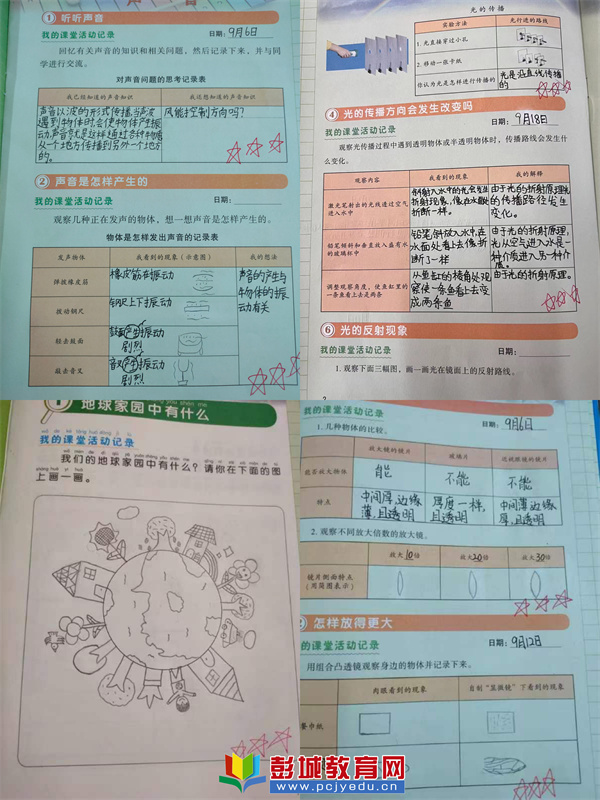 声音
① 听听声音
我的课堂活动记录 日期: 9月6日
回忆有关声音的知识和相关问题，然后记录下来，并与同
学进行交流。
对声音问题的思考记录表
我已经知道的声音知识 我还想知道的声音知识
声音以波的形式传播,当声波
遇到物体时,会使物体产生振
动,声音就是这样通过各种物体
从一个地方传播到另外一个地方
的。
风能控制方向吗?
② 声音是怎样产生的
我的课堂活动记录 日期:
观察几种正在发声的物体，想一想声音是怎样产生的。
物体是怎样发出声音的记录表
发声物体 我看到的现象（示意图） 我的想法
弹拨橡皮筋 橡皮筋在振动
拨动钢尺 钢尺上下振动
轻击鼓面 鼓面产生振动
剧烈
敲击音叉 音叉产生振动
剧烈
声音的产生与
物体的振
动有关
光的传播
实验方法 光行进的路线
1. 光直接穿过小孔
2. 移动一张卡纸
你认为光是怎样进行传播的 光是沿直线传播
的
④ 光的传播方向会发生改变吗
我的课堂活动记录 日期: 9月18日
观察光传播过程中遇到透明物体或半透明物体时，传播路线会发生什
么变化。
观察内容 我看到的现象 我的解释
激光笔射出的光线透过空气
进入水中
斜射入水中的光会发生
折射现象,像在水面处
折断一样。
由于光的折射原理,光
的传播路径发生
变化。
铅笔倾斜和垂直放入盛有水
的玻璃杯中
铅笔斜放入水中,在
水面处看上去像折
断了一样
由于光的折射原理,
光从空气进入水是一
种介质进入另一种介
质。
调整观察角度，使鱼缸里的
一条鱼看上去是两条
从鱼缸的棱角处观
察使一条鱼看上去变
成两条鱼
由于光的折射原理。
⑥ 光的反射现象
我的课堂活动记录 日期:
1. 观察下面三幅图，画一画光在镜面上的反射路线。
地球家园中有什么
我的课堂活动记录
我们的地球家园中有什么？请你在下面的图
上画一画。
我的课堂活动记录 日期: 9月6日
1. 几种物体的比较。
放大镜的镜片 玻璃片 近视眼镜的镜片
能否放大物体 能 不能 不能
特点
中间厚,边缘
薄,且透明
厚度一样,
且透明
中间薄,边缘
厚,且透明
2. 观察不同放大倍数的放大镜。
放大10倍 放大20倍 放大30倍
镜片侧面特点
（用简图表示）
怎样放得更大
的课堂活动记录 日期: 9月12日
用组合凸透镜观察身边的物体并记录下来。
肉眼看到的现象 自制“显微镜”下看到的现象
餐巾纸
彭城教育网
www.pcjyedu.cn